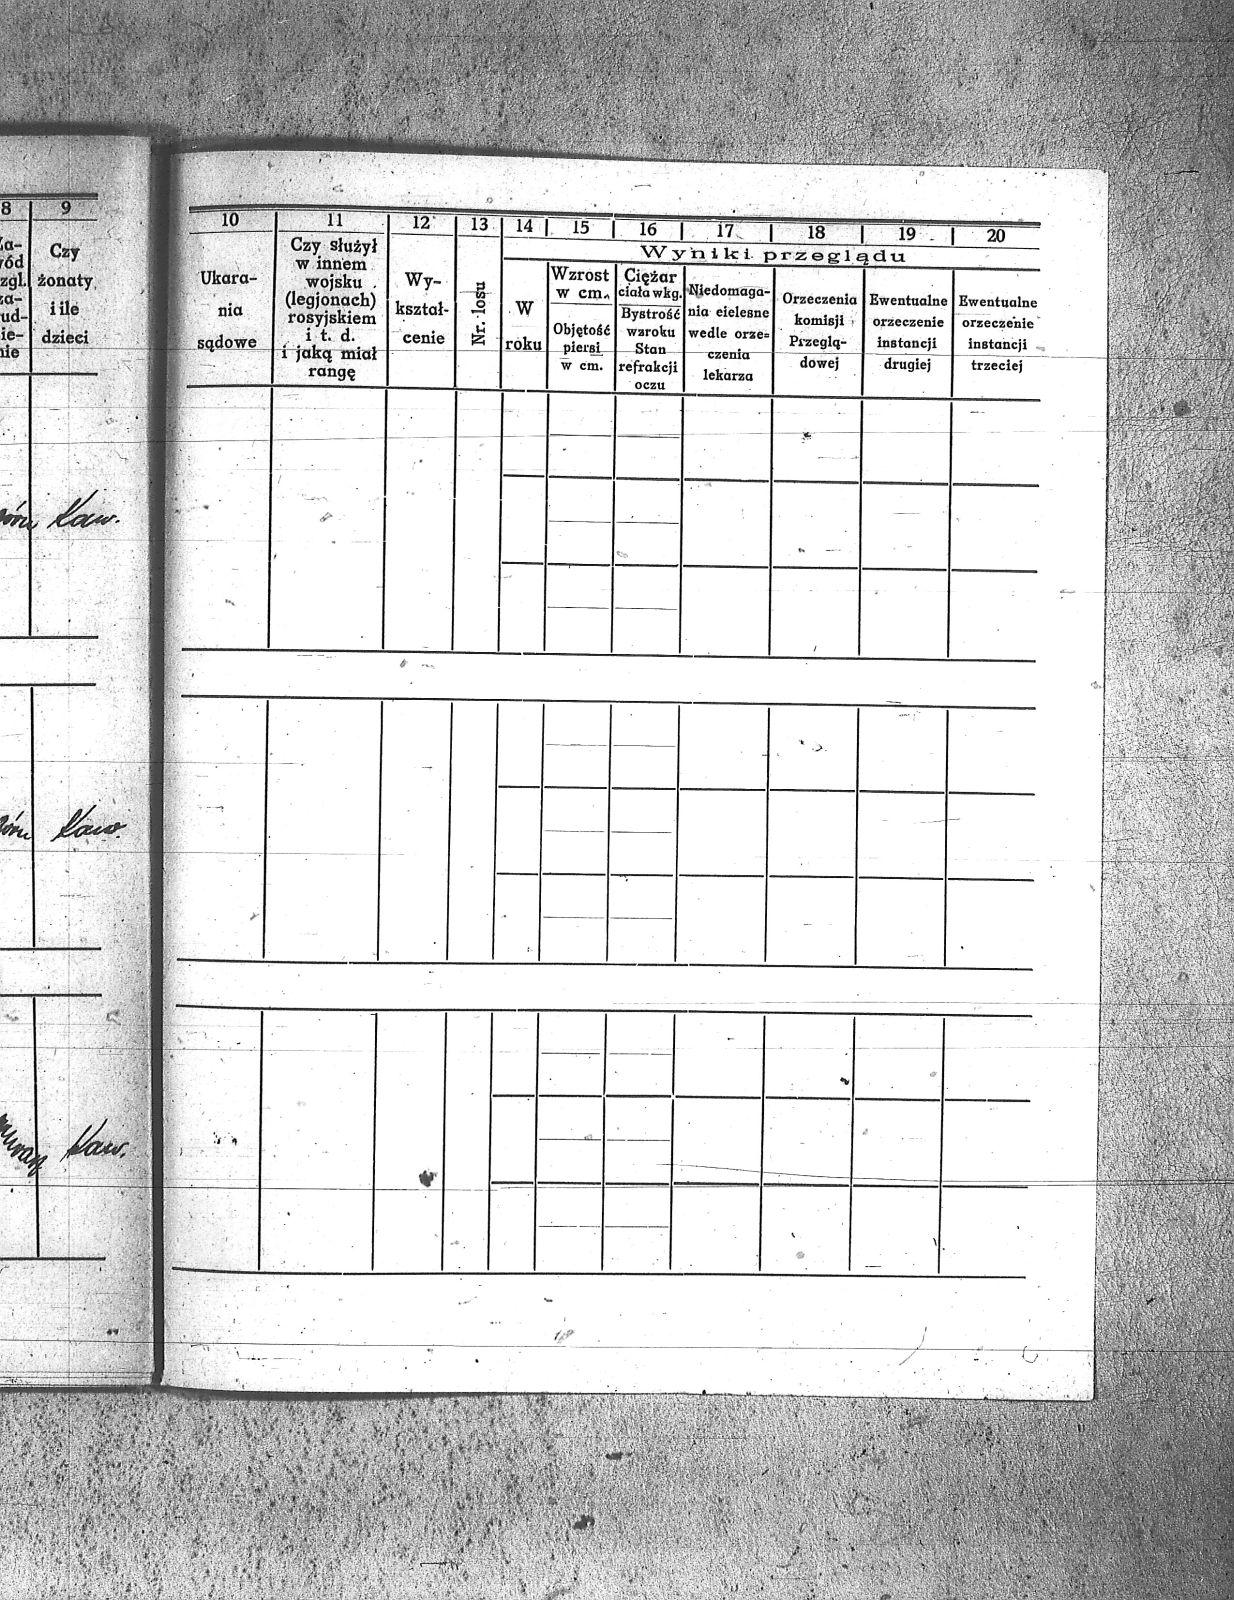 8 9
Czy
żonaty
i ile
dzieci
Kaw.
Kaw.
Kaw.
10 11 12 13 14 15 16 17 18 19 20
Wyniki przeglądu
Ukara-
nia
sądowe
Czy służył
w innem
wojsku
(legjonach)
rosyjskiem
i t. d.
i jaką miał
rangę
Wy-
kształ-
cenie
Nr. losu
W
roku
Wzrost
w cm.
Objętość
piersi
w cm.
Ciężar
ciała w kg.
Bystrość
wzroku
Stan
refrakcji
oczu
Niedomaga-
nia cielesne
wedle orze-
czenia
lekarza
Orzeczenia
komisji
Przeglą-
dowej
Ewentualne
orzeczenie
instancji
drugiej
Ewentualne
orzeczenie
instancji
trzeciej